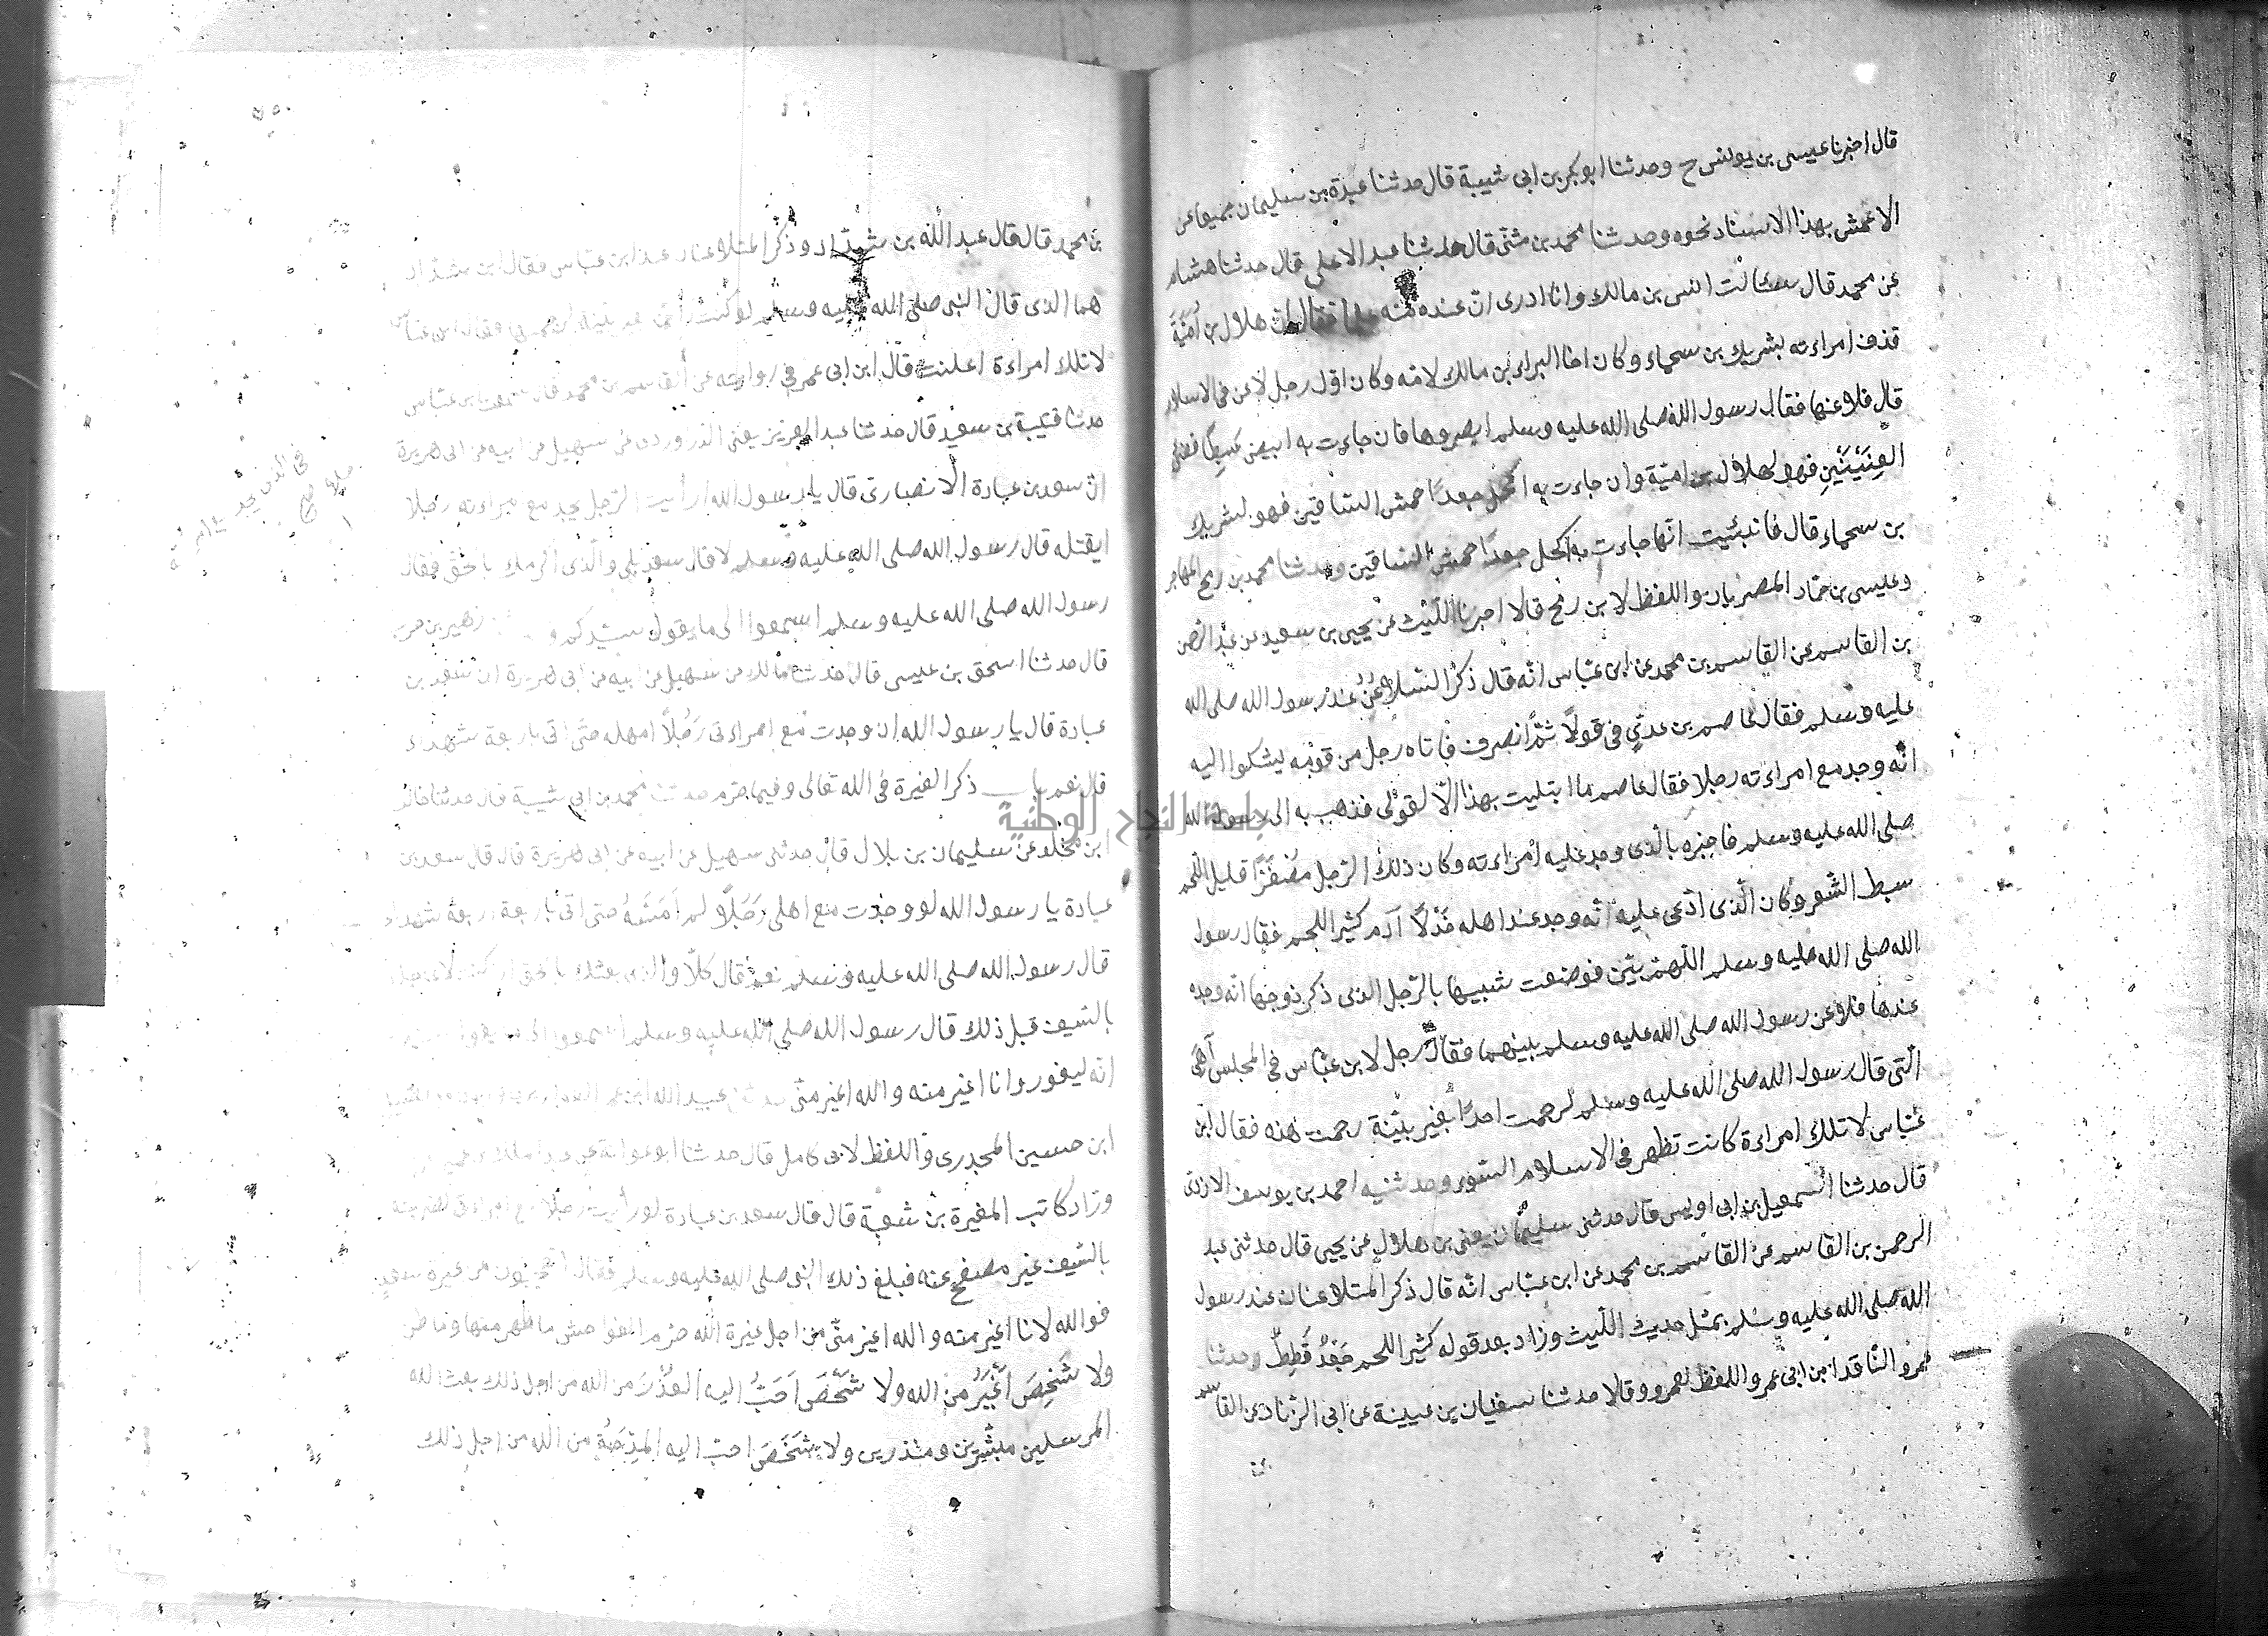 قال اخبرنا عيسى بن يونس ح وحدثنا ابو بكر بن ابى شيبة قال حدثنا عبدة بن سليمان جميعا عن
الاعمش بهذا الاسناد نحوه وحدثنا محمد بن مثنى قال حدثنا عبد الاعلى قال حدثنا هشام
عن محمد قال سئالت انس بن مالك وانا ادرى انّ عنده منه علما فقال ان هلال بن اُمَيَّةَ
قذف امراءته بشريك بن سحماء وكان اخا البراء بن مالك لامّه وكان اوّل رجل لاعن فى الاسلام
قال فلاعنها فقال رسول الله صلى الله عليه وسلم ابصروها فان جاءت به ابيض سَبِطًا قضئ
العِيَيْنَيْنِ فهو لهلال بن امّية وان جاءت به اكحل جعدًا حمش السّاقين فهو لشريك
بن سحماء قال فانبئيت انّها جاءت به اكحل جعدًا حمش السّاقين وحدثنا محمد بن رمح المهاجر
وعليسى بن حمّاد المصريان واللفظ لابن رمح قالا اخبرنا اللّيث عن يحيى بن سعيد عن عبد الرّحمن
بن القاسم عن القاسم بن محمد عن ابن عبّاس انّه قال ذكر التّلاعُنُ عند رسول الله صلى الله
عليه وسلم فقال عاصم بن عدىّ فى قولًا ثمّ انصرف فاتاه رجل من قومه ليشكوا اليه
انّه وجد مع امراءته رجلا فقال عاصم ما ابتليت بهذا الّا لقولى فذهب به الى رسول الله
صلى الله عليه وسلم فاخبره بالّذى وجد عليه امراءته وكان ذلك الرّجل مُصْفَرًّا قليل اللّحم
سبط الشّعر وكان الّذى ادّعى عليه انّه وجد عند اهله خَدْلًا آدم كثير اللحم فقال رسول
الله صلى الله عليه وسلم اللّهمّ بيّن فوضعت شبيها بالرّجل الذى ذكر زوجها انّه وجده
عندها فلاعن رسول الله صلى الله عليه وسلم بينهما فقال رجل لابن عبّاس فى المجلس اَهى
الّتى قال رسول الله صلى الله عليه وسلم لو رجمت احدًا بغير بيّنة رجمت هذه فقال ابن
عبّاس لا تلك امراءة كانت تظهر فى الاسلام السّوء وحدثنيه احمد بن يوسف الازدى
قال حدثنا اسمعيل بن ابى اويس قال حدثنى سليمان يعنى بن هلال عن يحيى قال حدثنى عبد
الرحمن بن القاسم عن القاسم بن محمد عن ابن عبّاس انّه قال ذكر المتلاعنان عند رسول
الله صلى الله عليه وسلم بمثل حديث اللّيث وزاد بعد قوله كثير اللحم جَعْدٌ قَطِطٌ وحدثنا
عمرو النّاقد ابن ابى عمر واللفظ لعمرو وقالا حدثنا سفيان بن عيينة عن ابى الزّناد عن القاسم
بن
بن محمد قال قال عبد الله بن شدّاد وذكر المتلاعنان عند ابن عبّاس فقال ابن شدّاد
هما الذى قال النّبى صلى الله عليه وسلم لو كنت راجمًا احدًا بغير بيّنة لرجمتها فقال ابن عبّاس
لا تلك امراءة اعلنت قال ابن ابى عمر فى روايته عن القاسم بن محمد قال سمعت ابن عبّاس
حدثنا قتيبة بن سعيد قال حدثنا عبد العزيز يعنى الدّروردى عن سهيل عن ابيه عن ابى هريرة
انّ سعد بن عبادة الانصارىّ قال يا رسول الله ارأيت الرّجل يجد مع امراءته رجلًا
ايقتله قال رسول الله صلى الله عليه وسلم لا قال سعد بلى والّذى اكرمك بالحقّ فقال
رسول الله صلى الله عليه وسلم اسمعوا الى ما يقول سيّدكم و زهير بن حرب
قال حدثنا اسحق بن عليسى قال حدثنا مالك عن سهيل عن ابيه عن ابى هريرة انّ سعد بن
عبادة قال يا رسول الله ان وجدت مع امراءتى رَجُلًا امهله حتّى اتى باربعة شهداء
قال نعم باب ذكر الغيرة فى الله تعالى وفيما حرّم حدثنا محمد بن ابى شيبة قال حدثنا خالد
ابن مخلد عن سليمان بن بلال قال حدثنى سهيل عن ابيه عن ابى هريرة قال قال سعد بن
عبادة يا رسول الله لو وجدت مع اهلى رَجَلًا لم اَمَسَّهُ حتى اتى باربعة شهداء
قال رسول الله صلى الله عليه وسلم نعم قال كلّا والذى بعثك بالحق ان كنت لاعاجله
بالسّيف قبل ذلك قال رسول الله صلى الله عليه وسلم اسمعوا الى ما يقول
انّه ليغور وانا اغير منه والله اغير منّى حدثنى عبيد الله ابن عمر
ابن حسين المجدرى واللفظ لابى كامل قال حدثنا ابو عوانة عن عبد الملك بن عمير
ورّاد كاتب المغيرة بن شعبة قال قال سعد بن عبادة لو رأيت رجلًا مع امراءتى لضربته
بالسّيف غير مصفح عنه فبلغ ذلك النبى صلى الله عليه وسلم فقال اتعجبون من غيرة سعد
فوالله لانا اغير منه والله اغير منّى من اجل غيرة الله حرّم الفواحش ما ظهر منها وما بطن
ولا شَخصَ اَغْيَرُ من الله ولا شَخَصَ اَحَبُّ اليه العذْرَ من الله من اجل ذلك بعث الله
المرسلين مبشّرين ومنذرين ولا شَخَصَ احبّ اليه المِدْحَةُ من الله من اجل ذلك
جامعة النجاح الوطنية